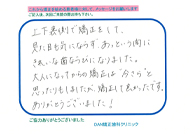 これから矯正を始める患者様に対して、メッセージをお願いします
ご記入後、次回ご来院の際お持ち下さい。
上下裏側で矯正して、
見た目も気にならず、あっという間に
きれいな歯ならびになりました。
大人になってからの矯正は"今さら"と
思ったりもしましたが、矯正して良かったです。
ありがとうございました!
ご協力ありがとうございました
DAN矯正歯科クリニック